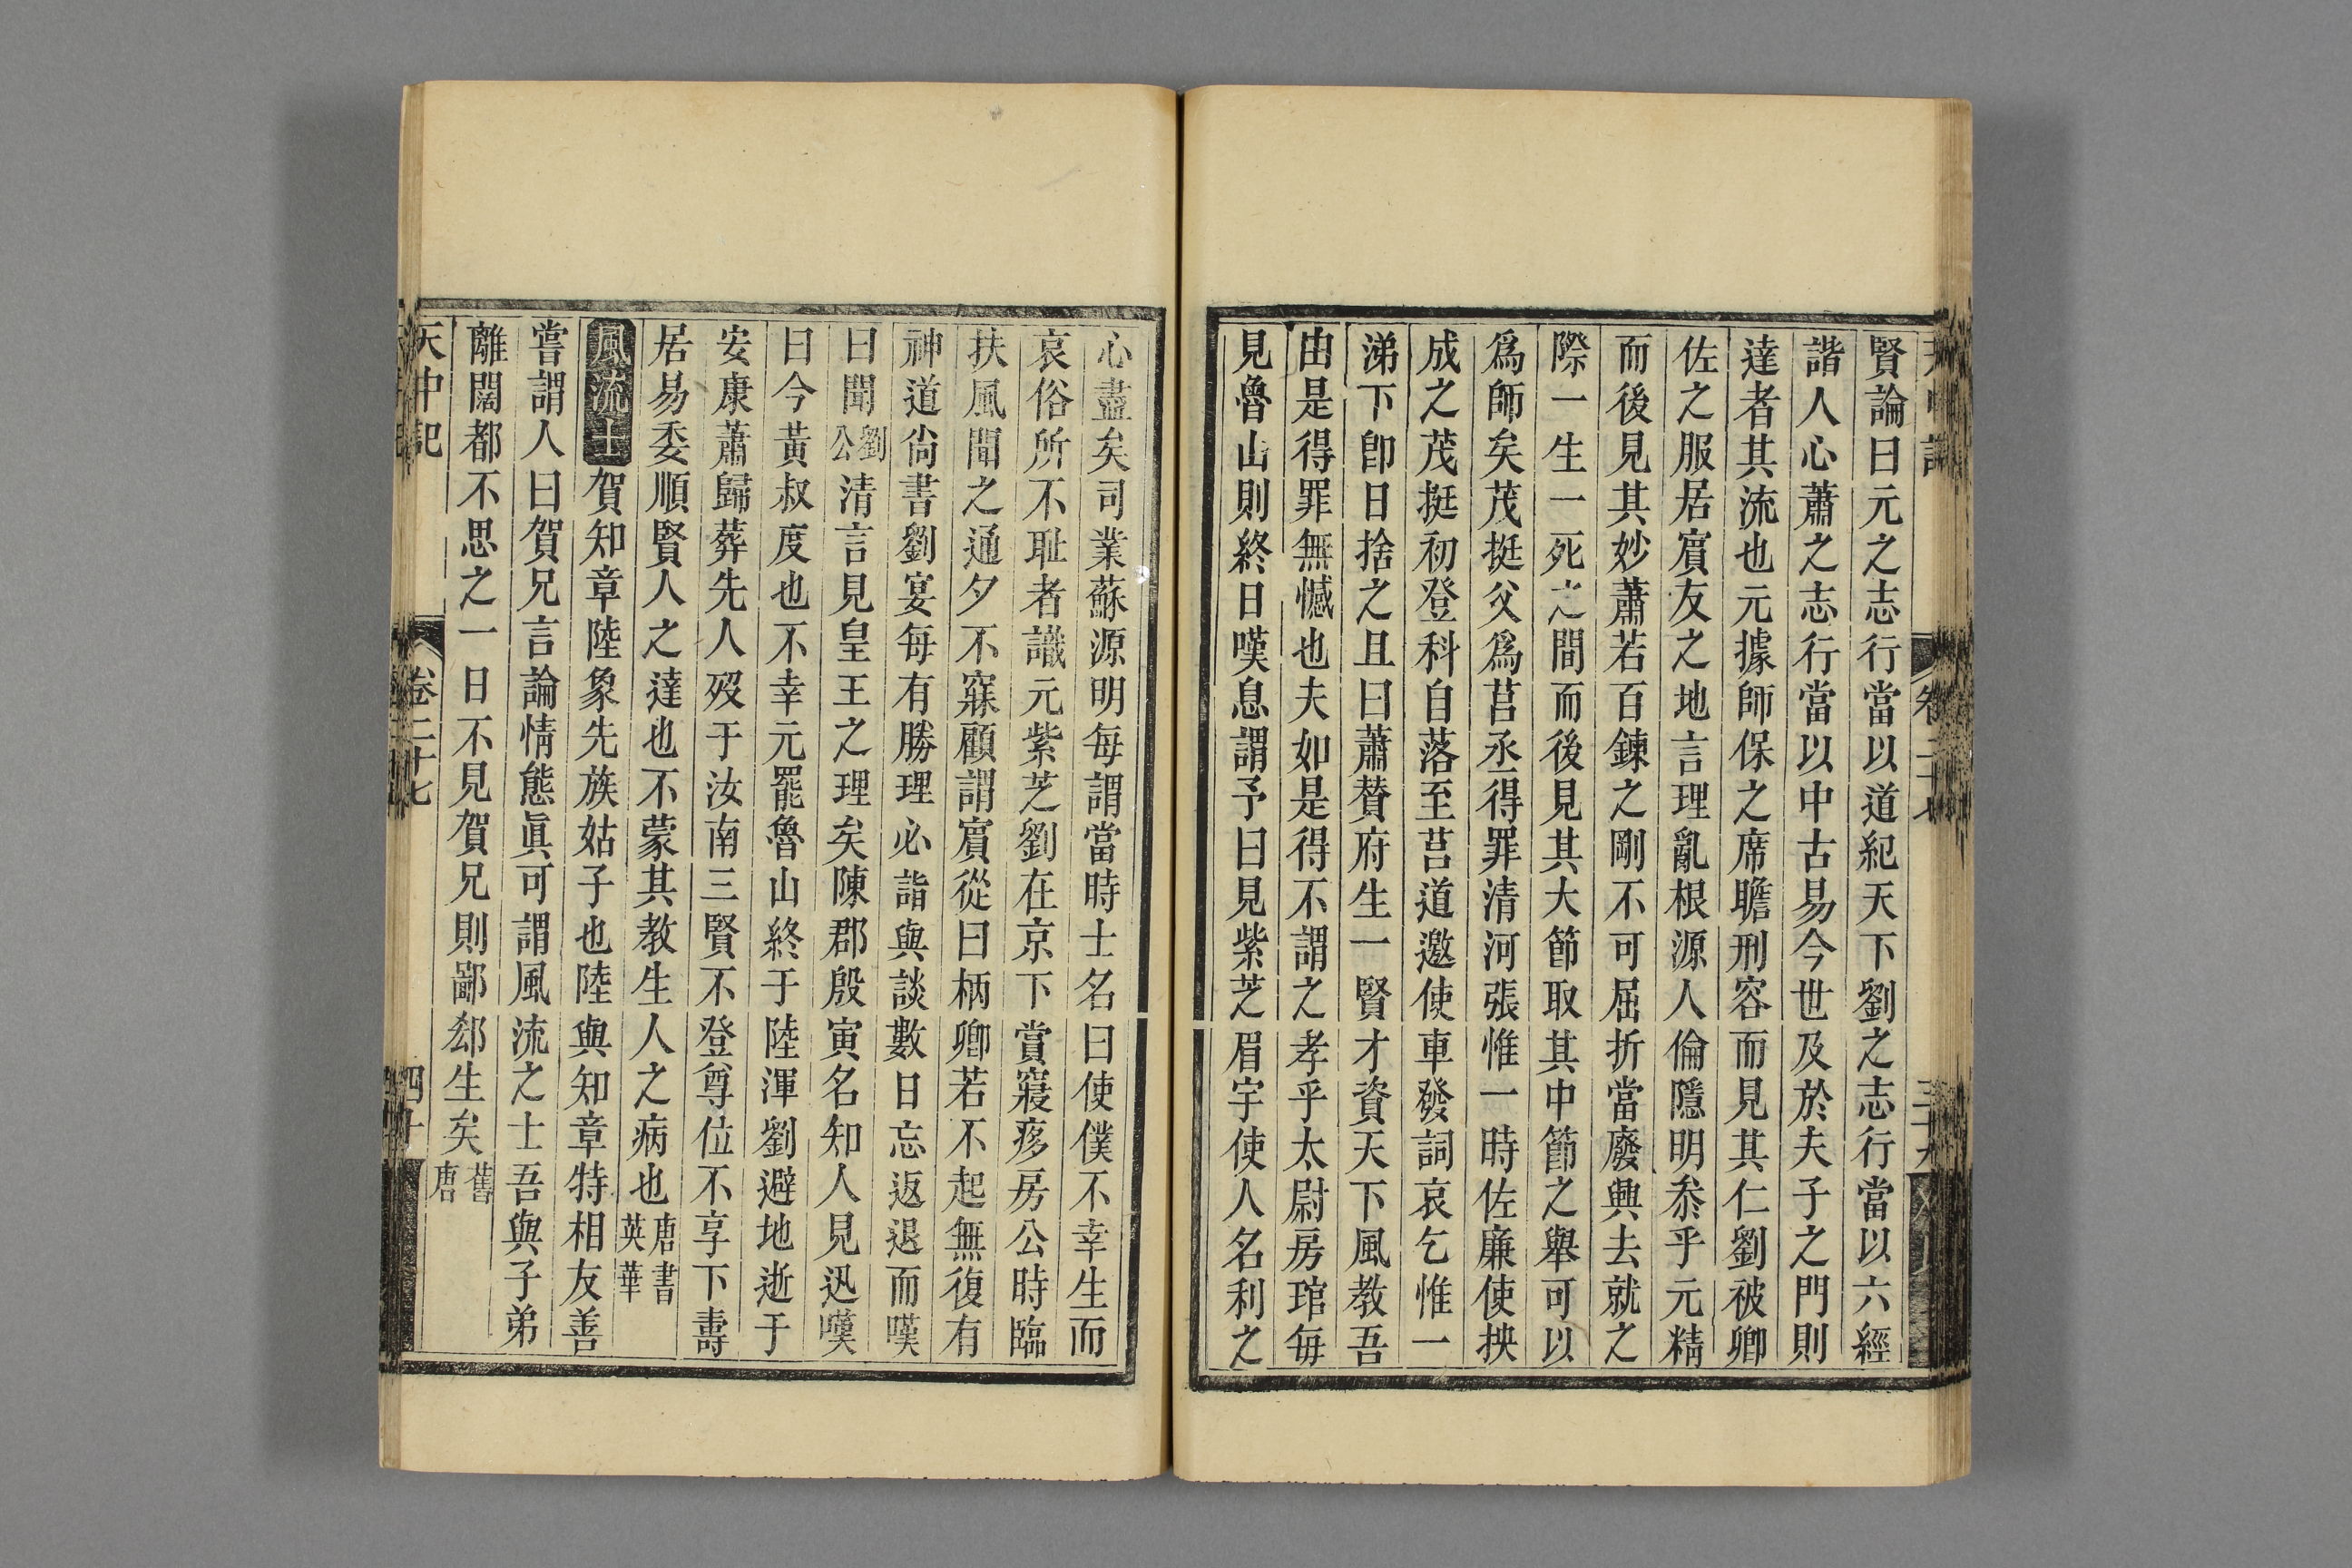 賢論曰元之志行當以道紀天下劉之志行當以六經
諧人心蕭之志行當以中古易今世及於夫子之門則
達者其流也元據師保之席瞻刑容而見其仁劉被卿
佐之服居賓友之地言理亂根源人倫隱明叅乎元精
而後見其妙蕭若百鍊之剛不可屈折當廢興去就之
際一生一死之間而後見其大節取其中節之舉可以
爲師矣茂挺父爲莒丞得罪清河張惟一時佐廉使按
成之茂挺初登科自落至莒道邀使車發詞哀乞惟一
涕下卽日捨之且曰蕭賛府生一賢才資天下風教吾
由是得罪無憾也夫如是得不謂之孝乎太尉房琯每
見魯山則終日嘆息謂予曰見紫芝眉宇使人名利之
心盡矣司業蘇源明每謂當時士名曰使僕不幸生而
哀俗所不耻者識元紫芝劉在京下賞寢疼房公時臨
扶風聞之通夕不寐顧謂賓從曰柄卿若不起無復有
神道尙書劉宴每有勝理必詣與談數日忘返退而嘆
曰聞劉公清言見皇王之理矣陳郡殷寅名知人見迅嘆
曰今黃叔度也不幸元罷魯山終于陸渾劉避地逝于
安康蕭歸葬先人殁于汝南三賢不登尊位不享下壽
居易委順賢人之達也不蒙其教生人之病也唐書英華
風流士賀知章陸象先族姑子也陸與知章特相友善
嘗謂人曰賀兄言論情態眞可謂風流之士吾與子弟
離闊都不思之一日不見賀兄則鄙郄生矣舊唐
天中記 卷二十七 四十